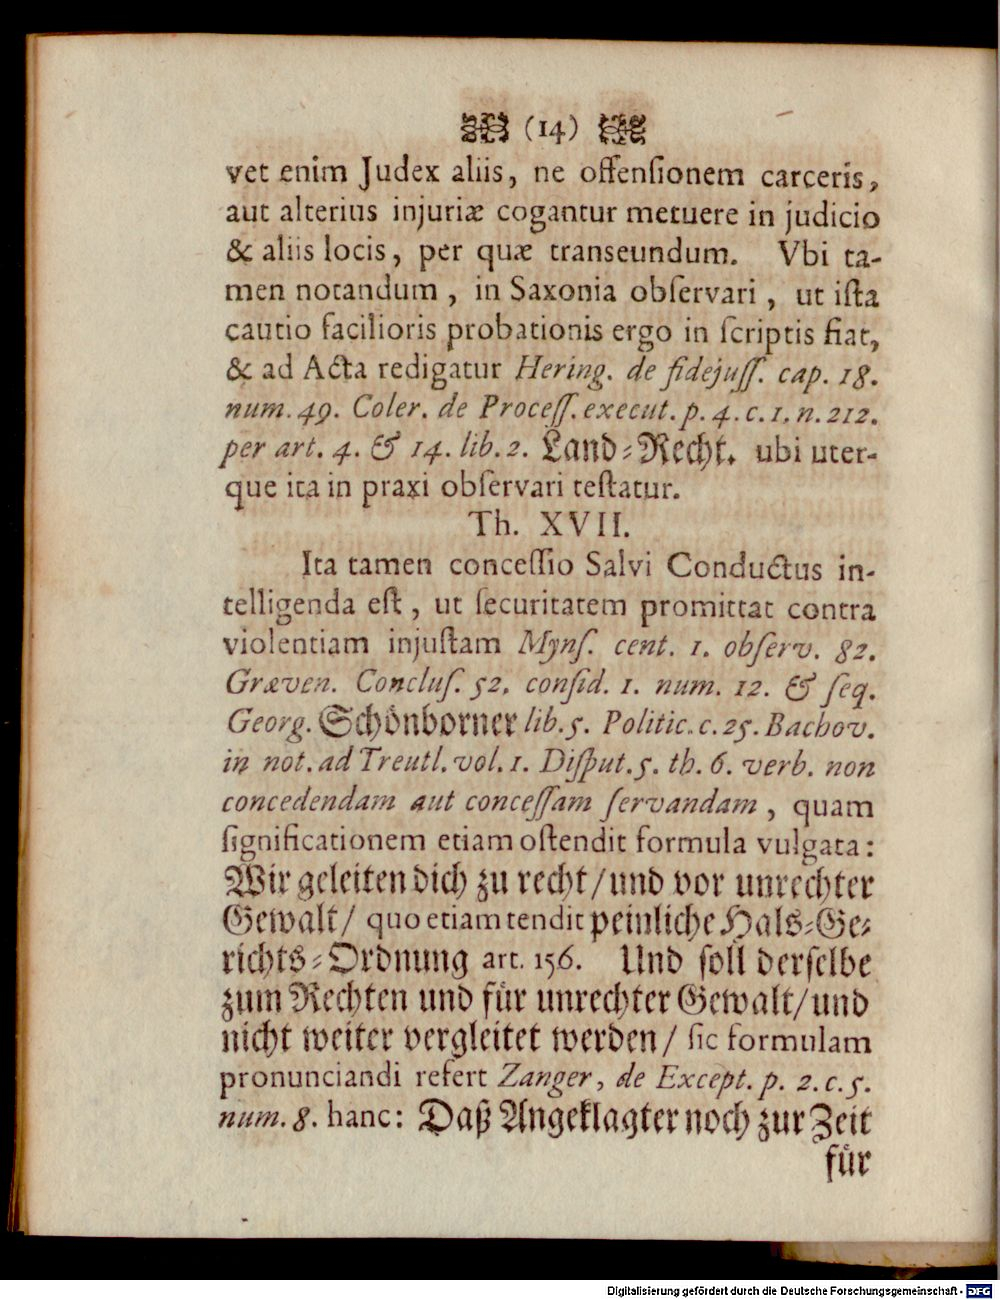 (14)
vet enim Judex aliis, ne offenſionem carceris,
aut alterius injuriæ cogantur metuere in judicio
& aliis locis, per quæ transeundum. Vbi ta-
men notandum, in Saxonia obſervari, ut iſta
cautio facilioris probationis ergo in ſcriptis fiat,
& ad Acta redigatur Hering. de fidejuſſ. cap. 18.
num. 49. Coler. de Proceſſ. execut. p. 4. c. 1. n. 212.
per art. 4. & 14. lib. 2. Land-Recht. ubi uter-
que ita in praxi obſervari teſtatur.
Th. XVII.
Ita tamen conceſſio Salvi Conductus in-
telligenda eſt, ut ſecuritatem promittat contra
violentiam injuſtam Mynſ. cent. 1. obſerv. 82.
Græven. Concluſ. 52. conſid. 1. num. 12. & ſeq.
Georg. Schönborner lib. 5. Politic. c. 25. Bachov.
in not. ad Treutl. vol. 1. Diſput. 5. th. 6. verb. non
concedendam aut conceſſam ſervandam, quam
ſignificationem etiam oſtendit formula vulgata:
Wir geleiten dich zu recht/ und vor unrechter
Gewalt/ quo etiam tendit peinliche Hals-Ge-
richts-Ordnung art. 156. Und ſoll derſelbe
zum Rechten und für unrechter Gewalt/ und
nicht weiter vergleitet werden/ ſic formulam
pronunciandi refert Zanger, de Except. p. 2. c. 5.
num. 8. hanc: Daß Angeklagter noch zur Zeit
für
Digitalisierung gefördert durch die Deutsche Forschungsgemeinschaft - DFG